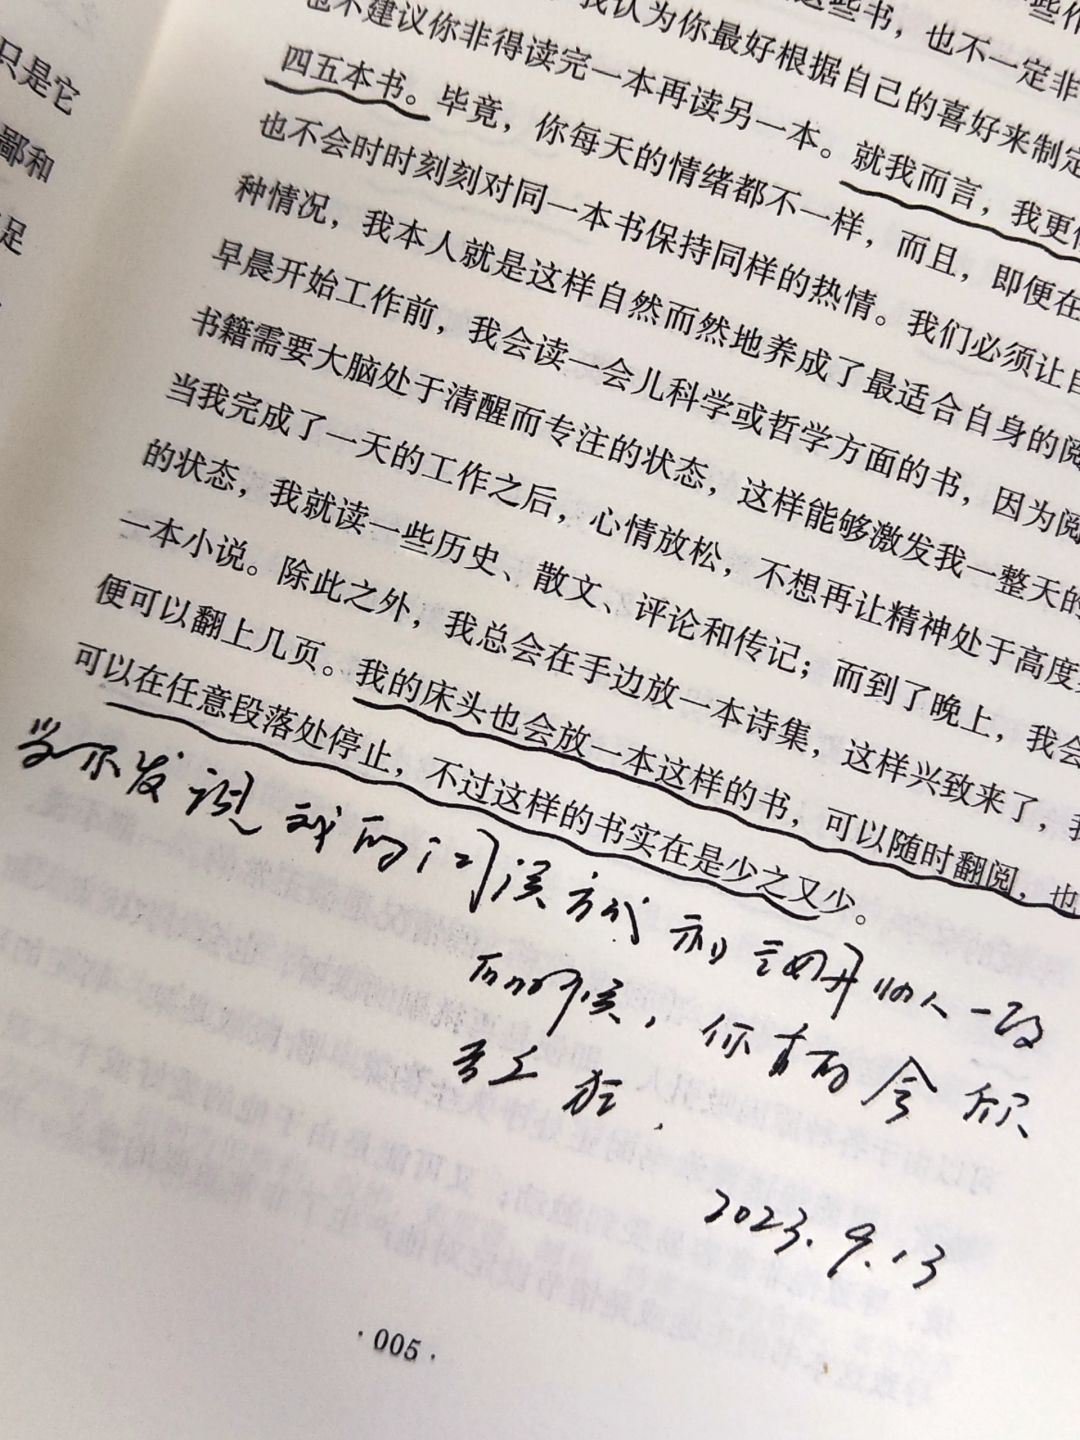 只是它
鄙和
足
些书，也不一定非
也不建议你非得读完一本再读另一本。就我而言，我更
我认为你最好根据自己的喜好来制定
四五本书。毕竟，你每天的情绪都不一样，而且，即便在
也不会时时刻刻对同一本书保持同样的热情。我们必须让
种情况，我本人就是这样自然而然地养成了最适合自身的阅
早晨开始工作前，我会读一会儿科学或哲学方面的书，因为阅
书籍需要大脑处于清醒而专注的状态，这样能够激发我一整天的
当我完成了一天的工作之后，心情放松，不想再让精神处于高度
的状态，我就读一些历史、散文、评论和传记；而到了晚上，我会
一本小说。除此之外，我总会在手边放一本诗集，这样兴致来了，
便可以翻上几页。我的床头也会放一本这样的书，可以随时翻阅，也
可以在任意段落处停止，不过这样的书实在是少之又少。
当你发现我的阅读方式和
人一致
的时候，你真的会很
2023.9.13
·005·